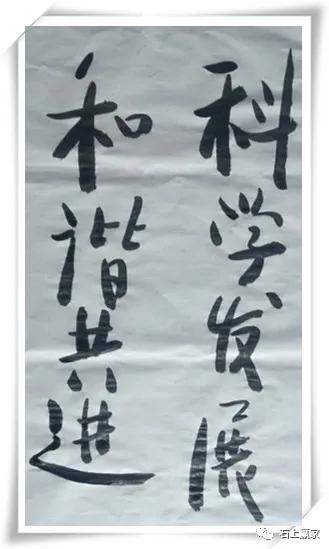 科学发展
和谐共进
石上赢家